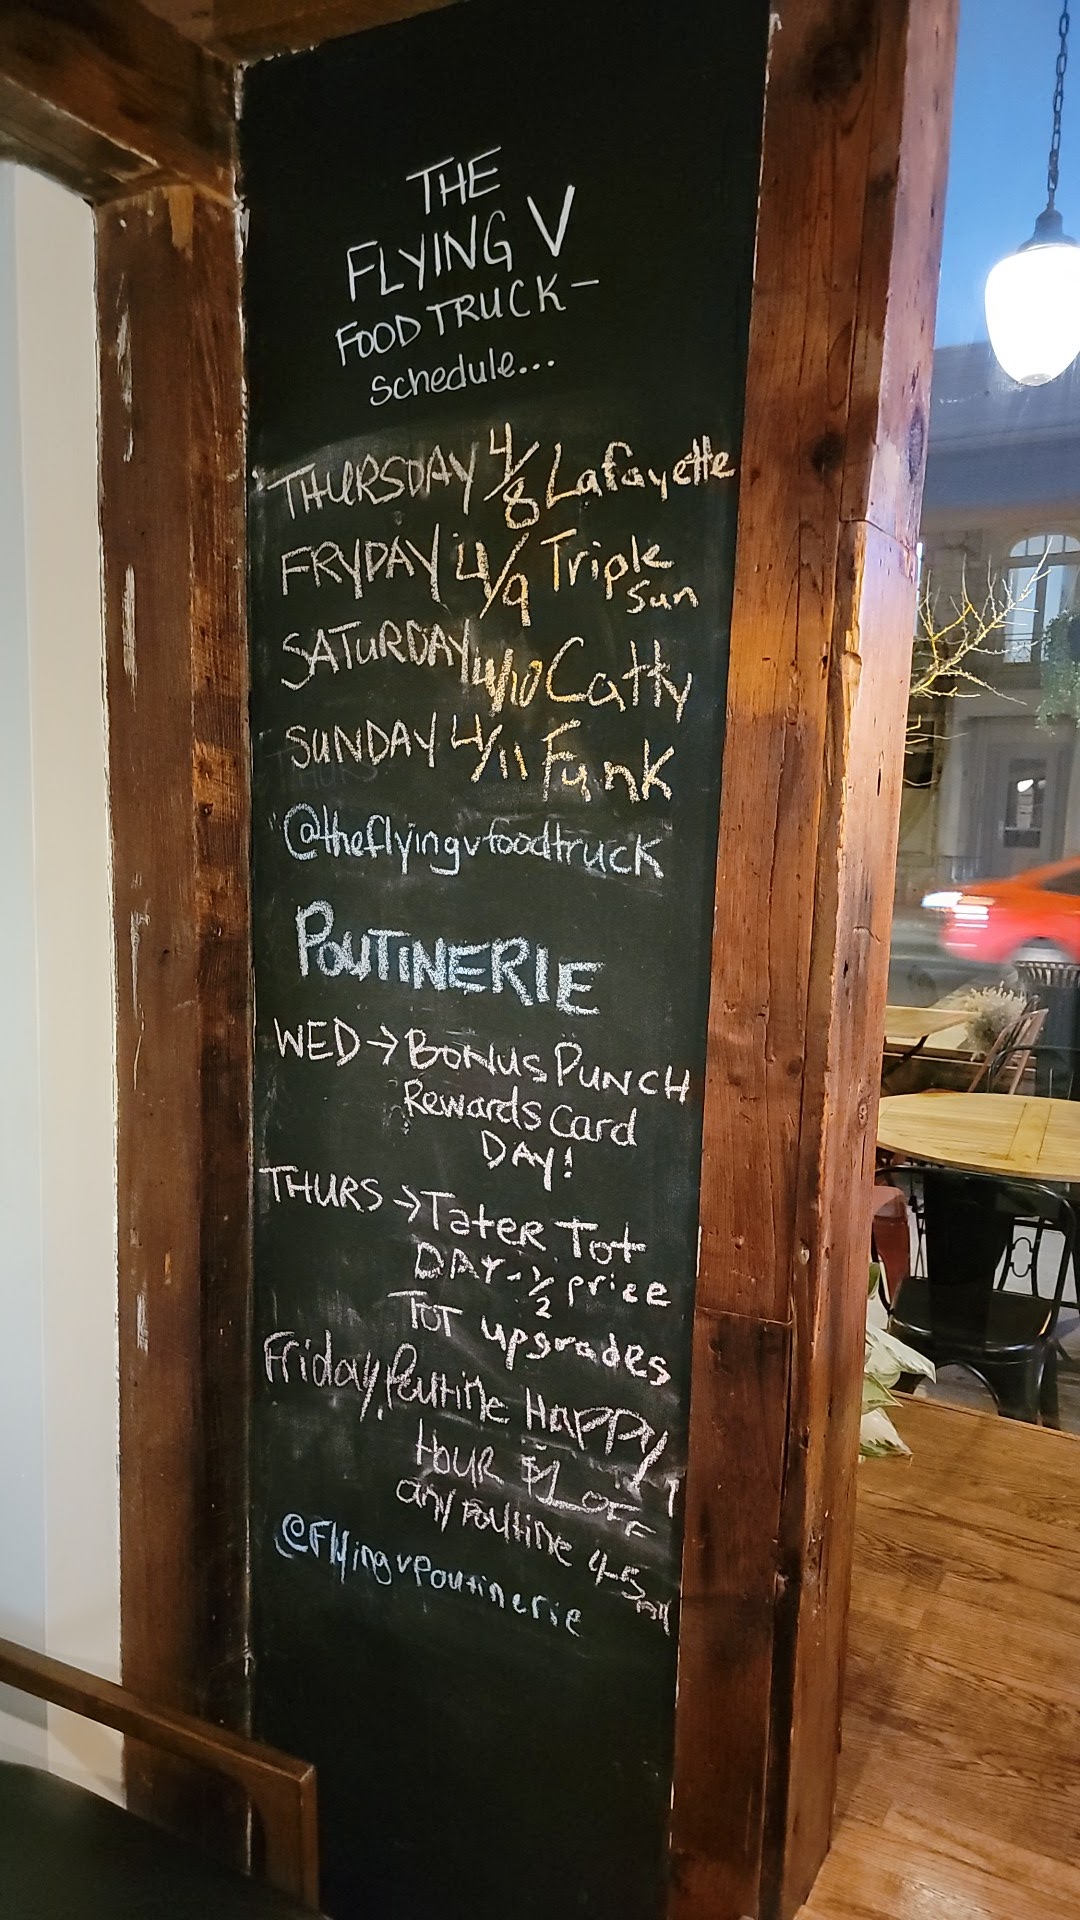 THE
FLYING V
FOOD TRUCK—
schedule...
THURSDAY 4/8 Lafayette
FRYDAY 4/9 Triple
Sun
SATURDAY 4/10 Catty
SUNDAY 4/11 Funk
@theflyingvfoodtruck
POUTINERIE
WED → BONUS PUNCH
Rewards Card
DAY!
THURS → Tater Tot
DAY - 1/2 price
TOT upgrades
Friday, Poutine HAPPY
HOUR $1 OFF
any poutine 4-5pm
@FlyingvPoutinerie